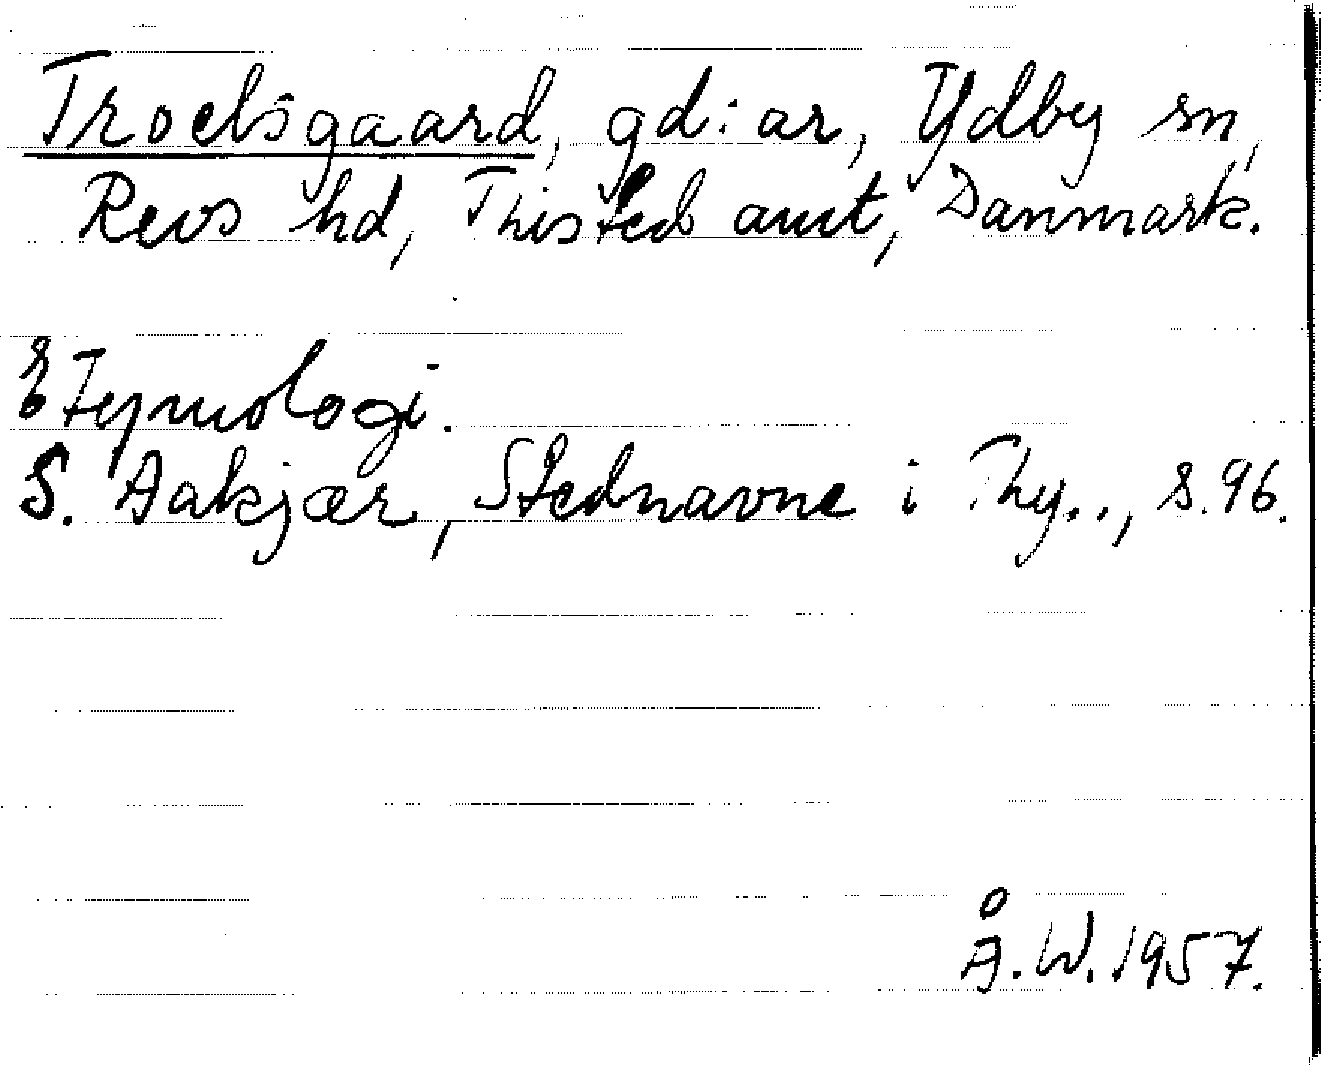 Troelsgaard, gd:ar, Ydby sn,
Revs hd, Thisted amt, Danmark.
Etymologi.
S. Aakjær, Stednavne i Thy.., s. 96.
Å. W. 1957.